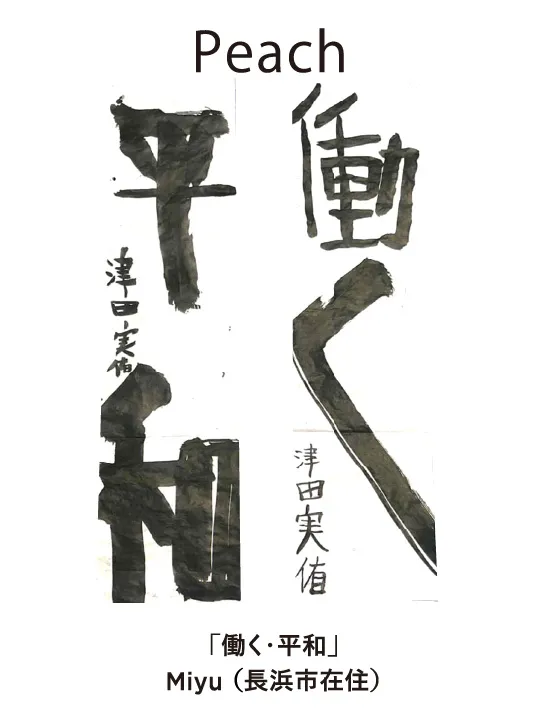 Peach
働く
津田実侑
平和
津田実侑
「働く・平和」
Miyu（長浜市在住）